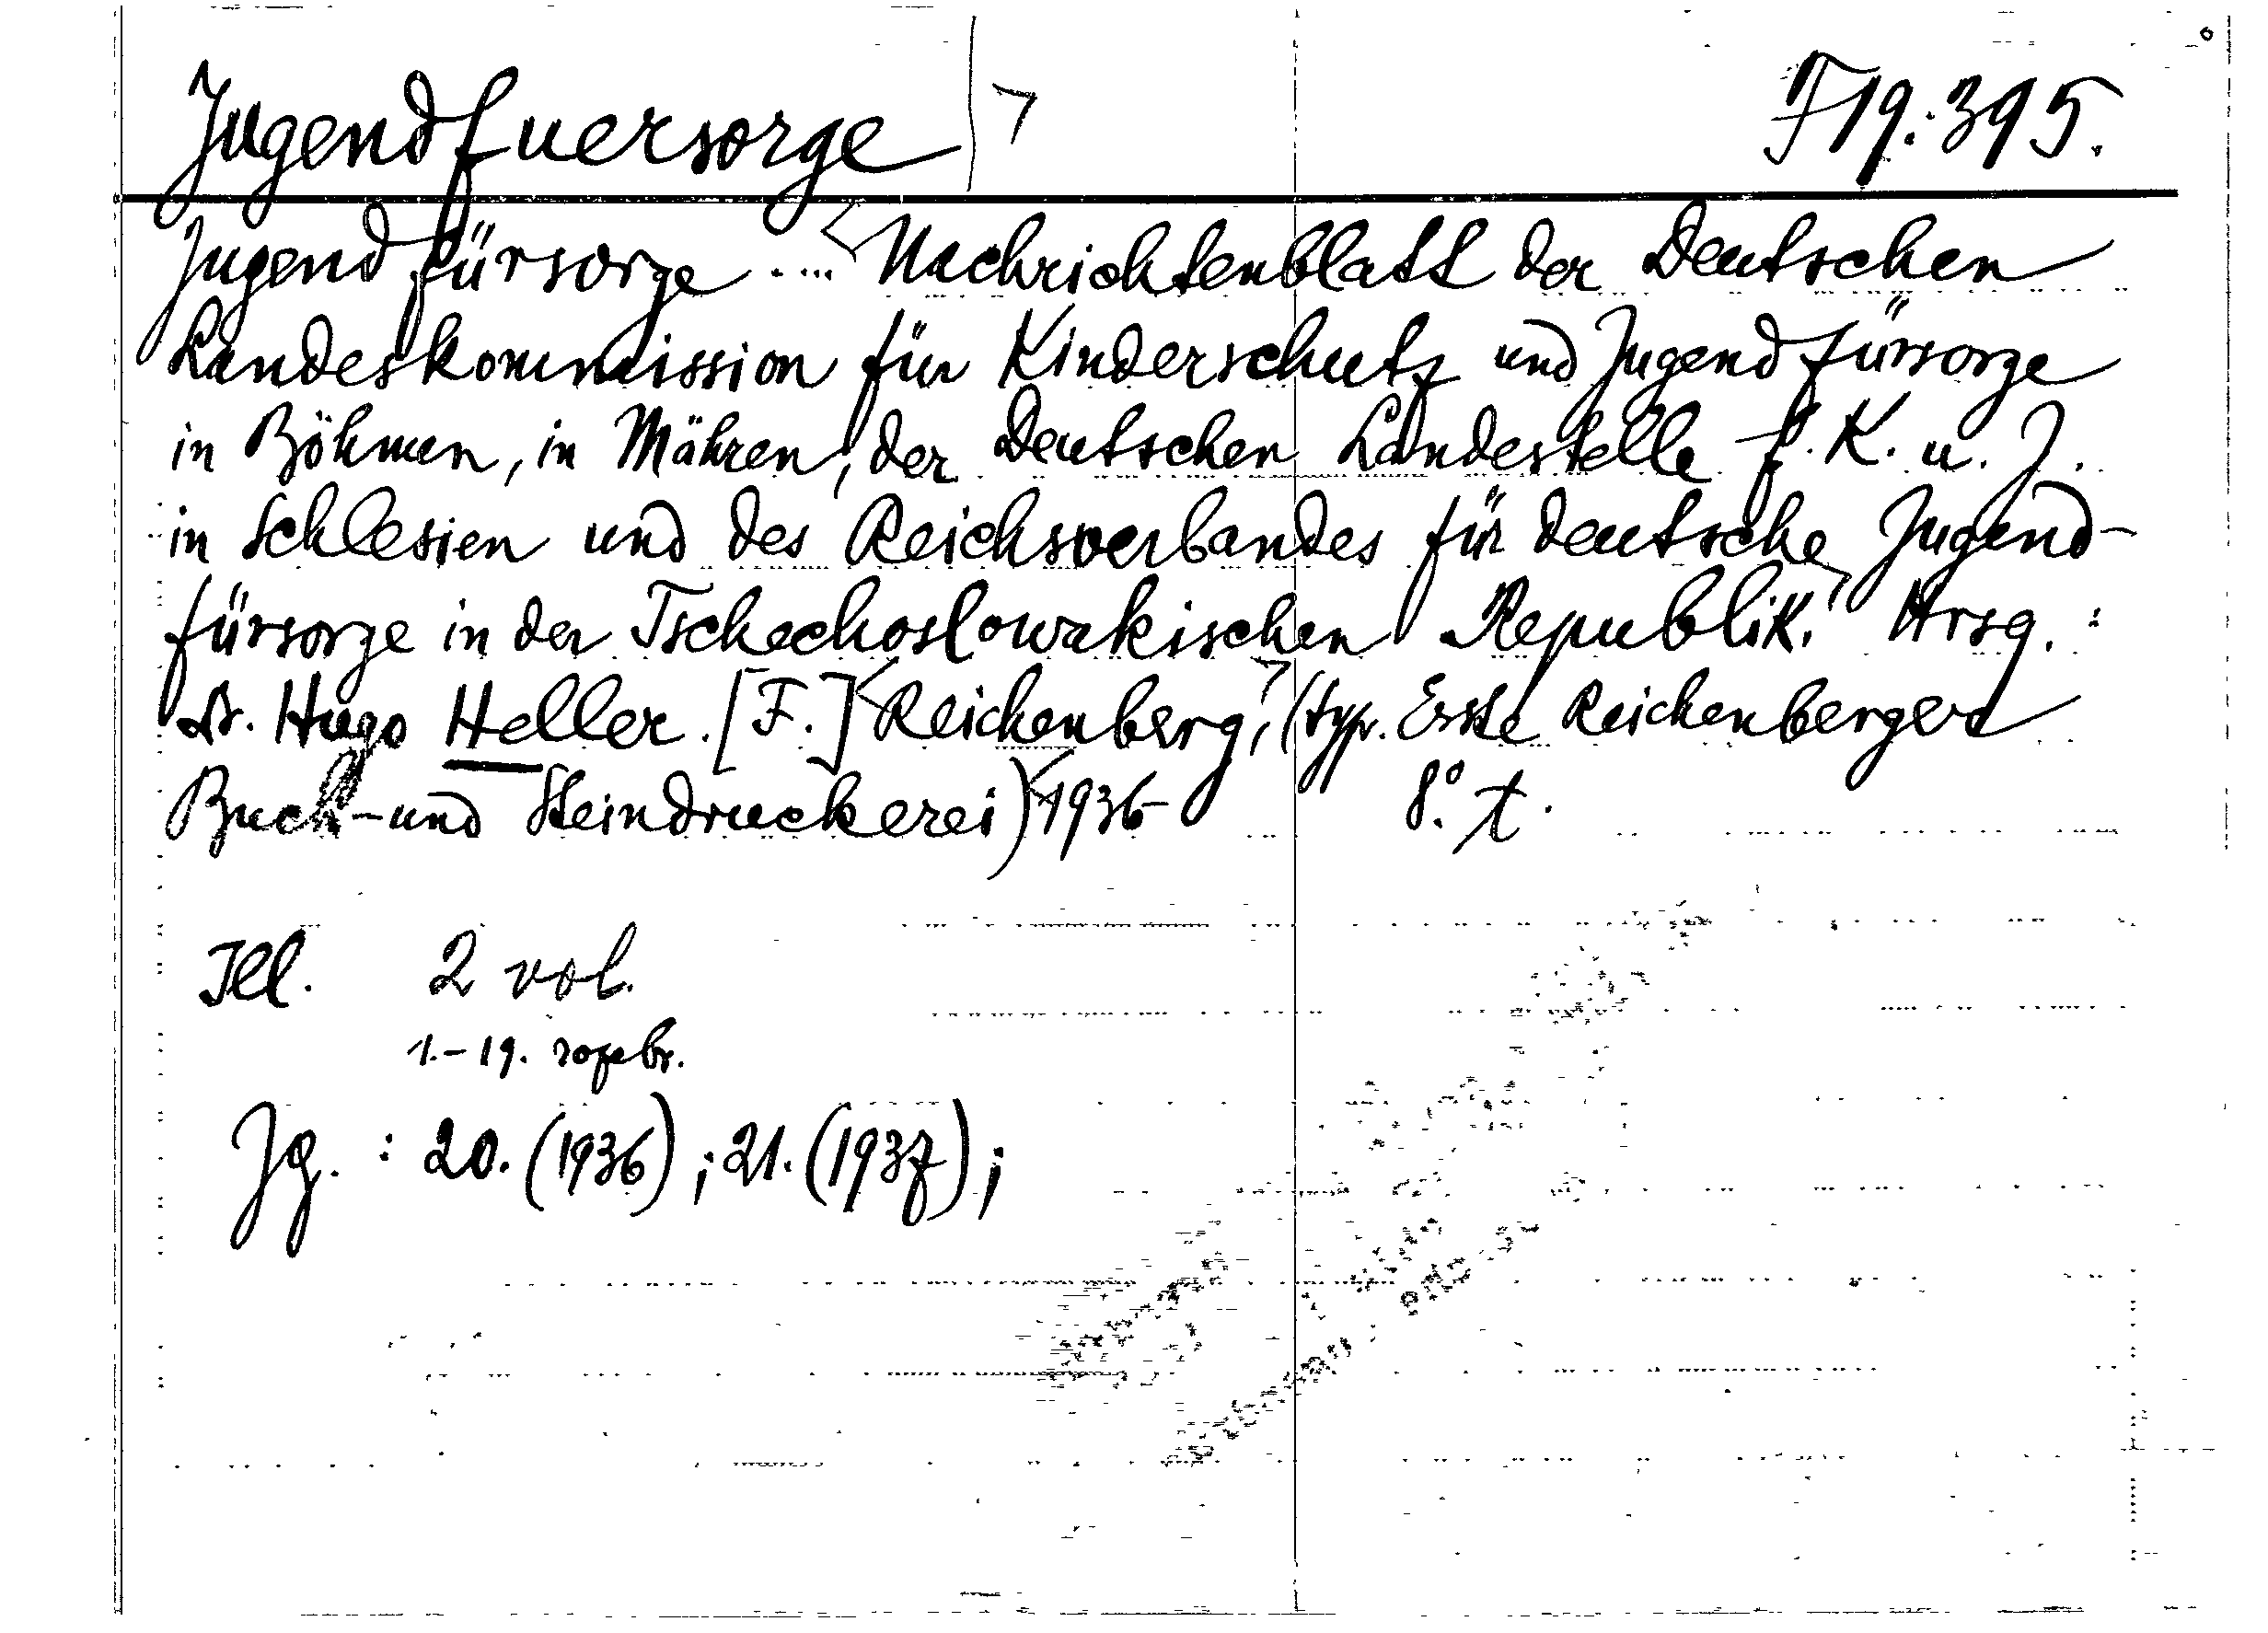 Jugendfuersorge F 19.395.
Jugendfürsorge .... Nachrichtenblatt der Deutschen
Landeskommission für Kinderschutz und Jugendfürsorge
in Böhmen, in Mähren, der Deutschen Landestelle f. K. u. J.
in Schlesien und des Reichsverbandes für deutsche Jugend-
fürsorge in der Tschechoslowakischen Republik. Hrsg. :
Dr. Hugo Heller. [F.] Reichenberg, (typ. Erste Reichenberger
Buch- und Steindruckerei) 1936- 8°. t.
Ill. 2 vol.
1.-19. rozebr.
Jg. : 20. (1936) ; 21. (1937) ;